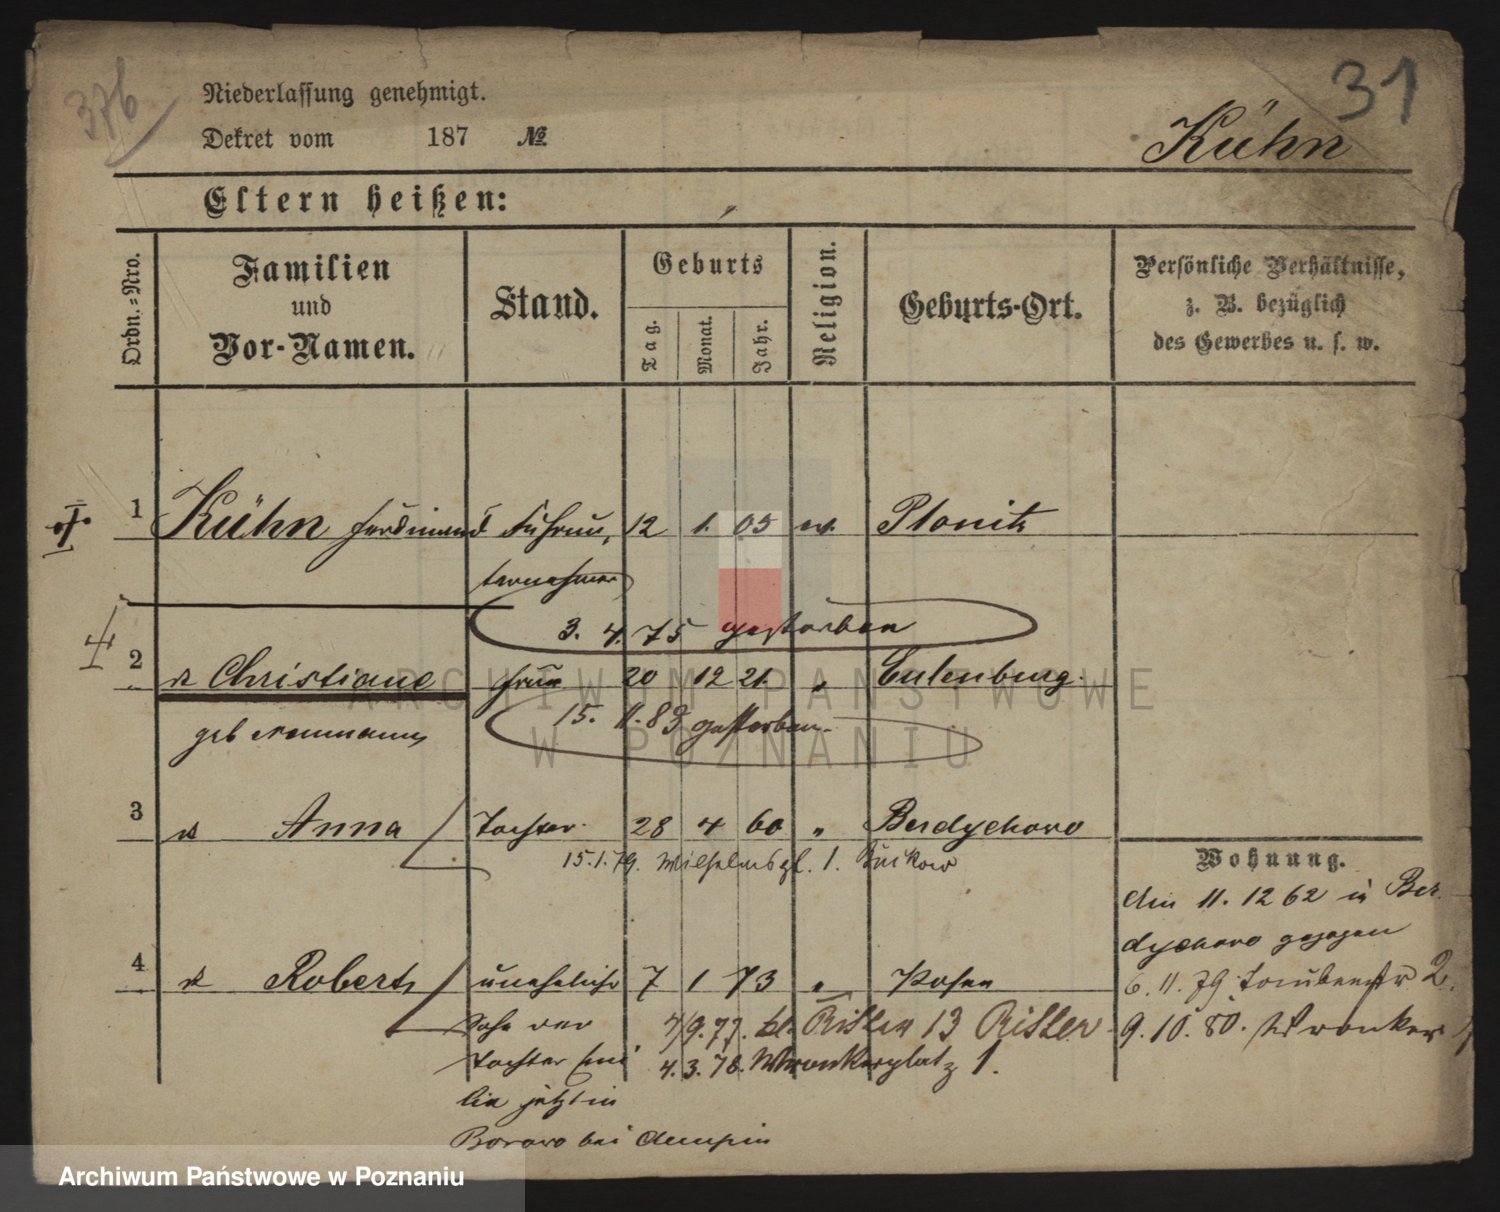 376
31
Niederlassung genehmigt.
Dekret vom 187 №
Kühn
Eltern heißen:
Ordn.-Nro.
Familien
und
Vor-Namen.
Stand.
Geburts
Tag.
Monat.
Jahr.
Religion.
Geburts-Ort.
Persönliche Verhältnisse,
z. B. bezüglich
des Gewerbes u. s. w.
1 Kühn Ferdinand Fuhrun, 12 1. 05 ev. Plonitz
ternehmer
3. 4. 75 gestorben
2 Christiane Frau 20 12 21. " Eulenburg.
15. 11. 89 gestorben
geb Neumann
3 Anna Tochter. 28 4 60 " Berdychowo
15.1.79. Wilhelmspl. 1.
Wohnung.
den 11. 12 62 in Ber
dychowo gezogen
4 Robert, uneheliche 7 1 73 " Posen
6. 11. 79 2.
Sohn der
4/9. 77. kl. Ritter 13 Ritter
9. 10. 80. Wronker
Tochter Emi
4. 3. 78. Wronkerplatz 1.
lie jetzt in
Borowo bei Czempin
ARCHIWUM PAŃSTWOWE
W POZNANIU
Archiwum Państwowe w Poznaniu